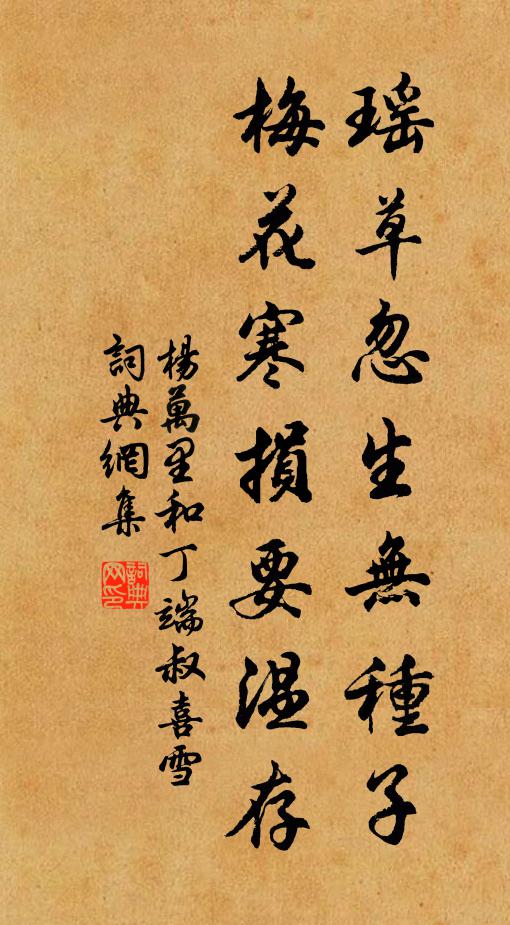 瑶草忽生無種子
梅花寒損要温存
楊萬里和丁端叔喜雪
詞典網集
詞典
网印